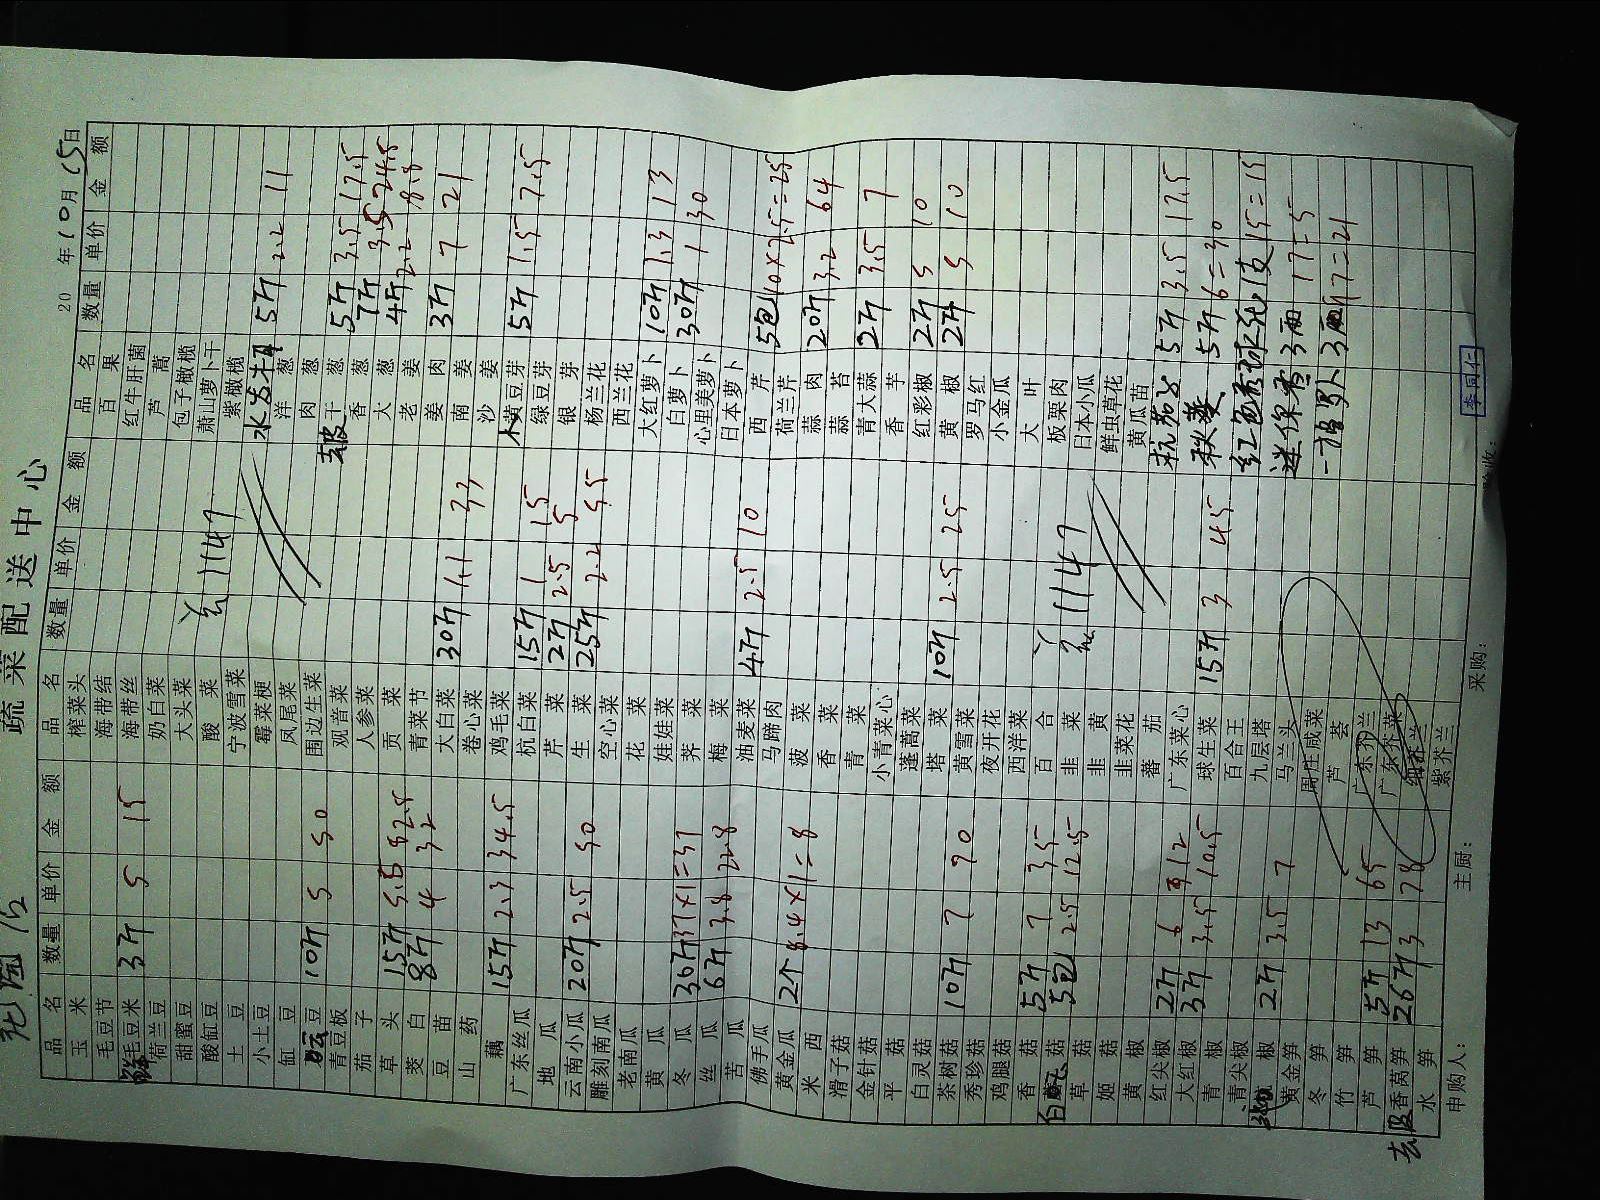 花园店
蔬菜配送中心
20 年10月15日
品名 数量 单价 金额
玉米
毛豆节
鲜毛豆米 3斤 5 15
荷兰豆
甜蜜豆
酸缸豆
土豆
小土豆
缸豆
豆 10斤 5 50
青豆板
茄子
草头 15斤 5.5 82.5
茭白 8斤 4 32
豆苗
山药
藕 15斤 2.3 34.5
广东丝瓜
地瓜
云南小瓜 20斤 2.5 50
雕刻南瓜
老南瓜
黄瓜
冬瓜 30斤 37×1=37
丝瓜 6斤 3.8 22.8
苦瓜
佛手瓜
黄金瓜 2个 8.4×1=8
米西
滑子菇
金针菇
平菇
白灵菇
茶树菇 10斤 7 70
秀珍菇
鸡腿菇
香菇 5斤 7 35
白 菇 5包 2.5 12.5
草菇
姬菇
黄椒
红尖椒 2斤 6 12
大红椒 3斤 3.5 10.5
青椒
青尖椒
椒 2斤 3.5 7
黄金笋
冬笋
竹笋
芦笋 5斤 13 65
去皮香莴笋 26斤 3 78
水笋
品名 数量 单价 金额
榨菜头
海带结
海带丝
奶白菜
大头菜
酸菜
宁波雪菜
霉菜梗
凤尾菜
围边生菜
观音菜
人参菜
贡菜
青菜节
大白菜 30斤 1.1 33
卷心菜
鸡毛菜
杭白菜 15斤 1 15
芹菜 2斤 2.5 5
生菜 25斤 2.2 55
空心菜
花菜
娃娃菜
荠菜
梅菜
油麦菜 4斤 2.5 10
马蹄肉
菠菜
香菜
青菜
小青菜心
蓬蒿菜
塔菜 10斤 2.5 25
黄雪菜
夜开花
西洋菜
百合
韭菜
韭黄
韭菜花
蕃茄
广东菜心
球生菜 15斤 3 45
百合王
九层塔
马兰头
周庄咸菜
芦荟
广东芥兰
广东芥菜
细芥兰
紫芥兰
1147
1147
品名 数量 单价 金额
百果
红牛肝菌
芦蒿
包子橄榄
萧山萝卜干
紫橄榄
水发木耳 5斤 2.2 11
洋葱
肉葱
去皮干葱 5斤 3.5 17.5
香葱 7斤 3.5 24.5
大葱 4斤 2.2 8.8
老姜
姜肉 3斤 7 21
南姜
沙姜
黄豆芽 5斤 1.5 7.5
绿豆芽
银芽
杨兰花
西兰花
大红萝卜 10斤 1.3 13
白萝卜 30斤 1 30
心里美萝卜
日本萝卜
西芹 5包 10×2.5=25
荷兰芹
蒜肉 20斤 3.2 64
蒜苔
青大蒜 2斤 3.5 7
香芋
红彩椒 2斤 5 10
黄椒 2斤 5 10
罗马红
小金瓜
大叶
板栗肉
日本小瓜
鲜虫草花
黄瓜苗
杭茄子 5斤 3.5 17.5
秋葵 5斤 6=30
红色绣球花1支15=15
迷你香3两 17=5
3 17=21
申购人：
主厨：
采购：
李同仁